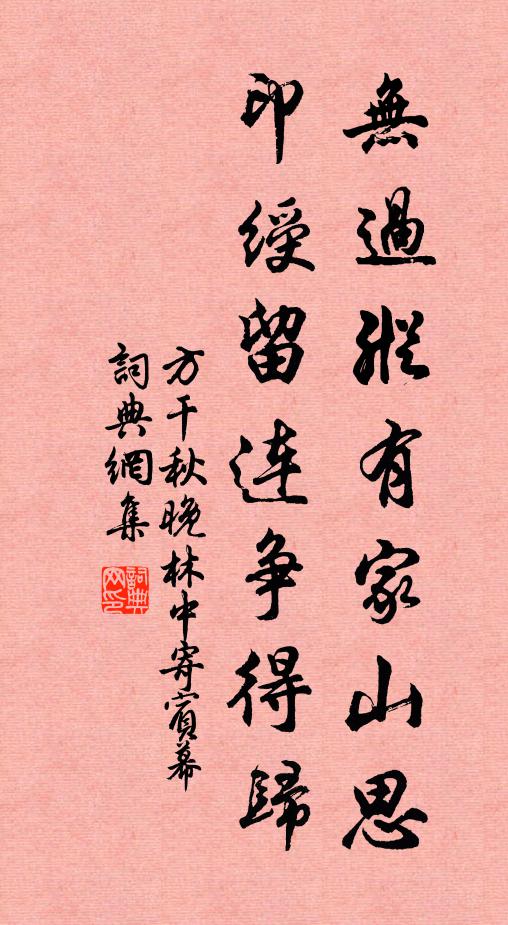 無過縱有家山思
印綬留连争得歸
方干秋晚林中寄賓幕
詞典網集
詞典网印